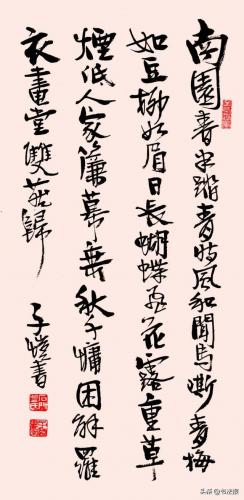 南園春半踏青時風和聞馬嘶青梅
如豆柳如眉日長蝴蝶飛花露重草
煙低人家簾幕垂秋千慵困解羅
衣畫堂雙燕歸 子愷書
头条